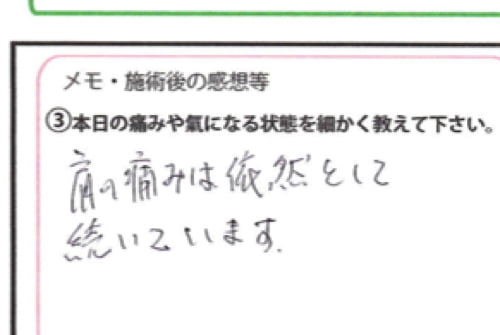 メモ・施術後の感想等
③本日の痛みや氣になる状態を細かく教えて下さい。
肩の痛みは依然として
続いています。